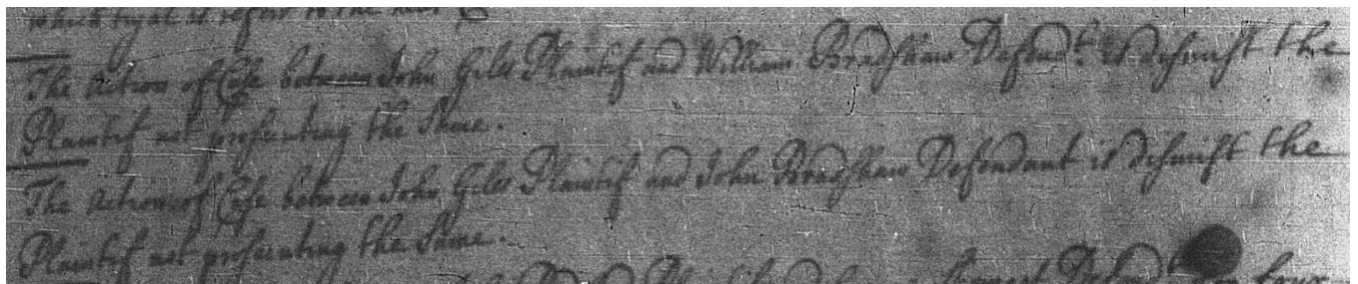 which tryal is referr'd to the next
The Action of Case between John Giles Plaintif and William Bradshaw Defend.t is dismist the
Plaintif not prosecuting the Same.
The Action of Case between John Giles Plaintif and John Bradshaw Defendant is dismist the
Plaintif not prosecuting the Same.
Plaintif and Defend